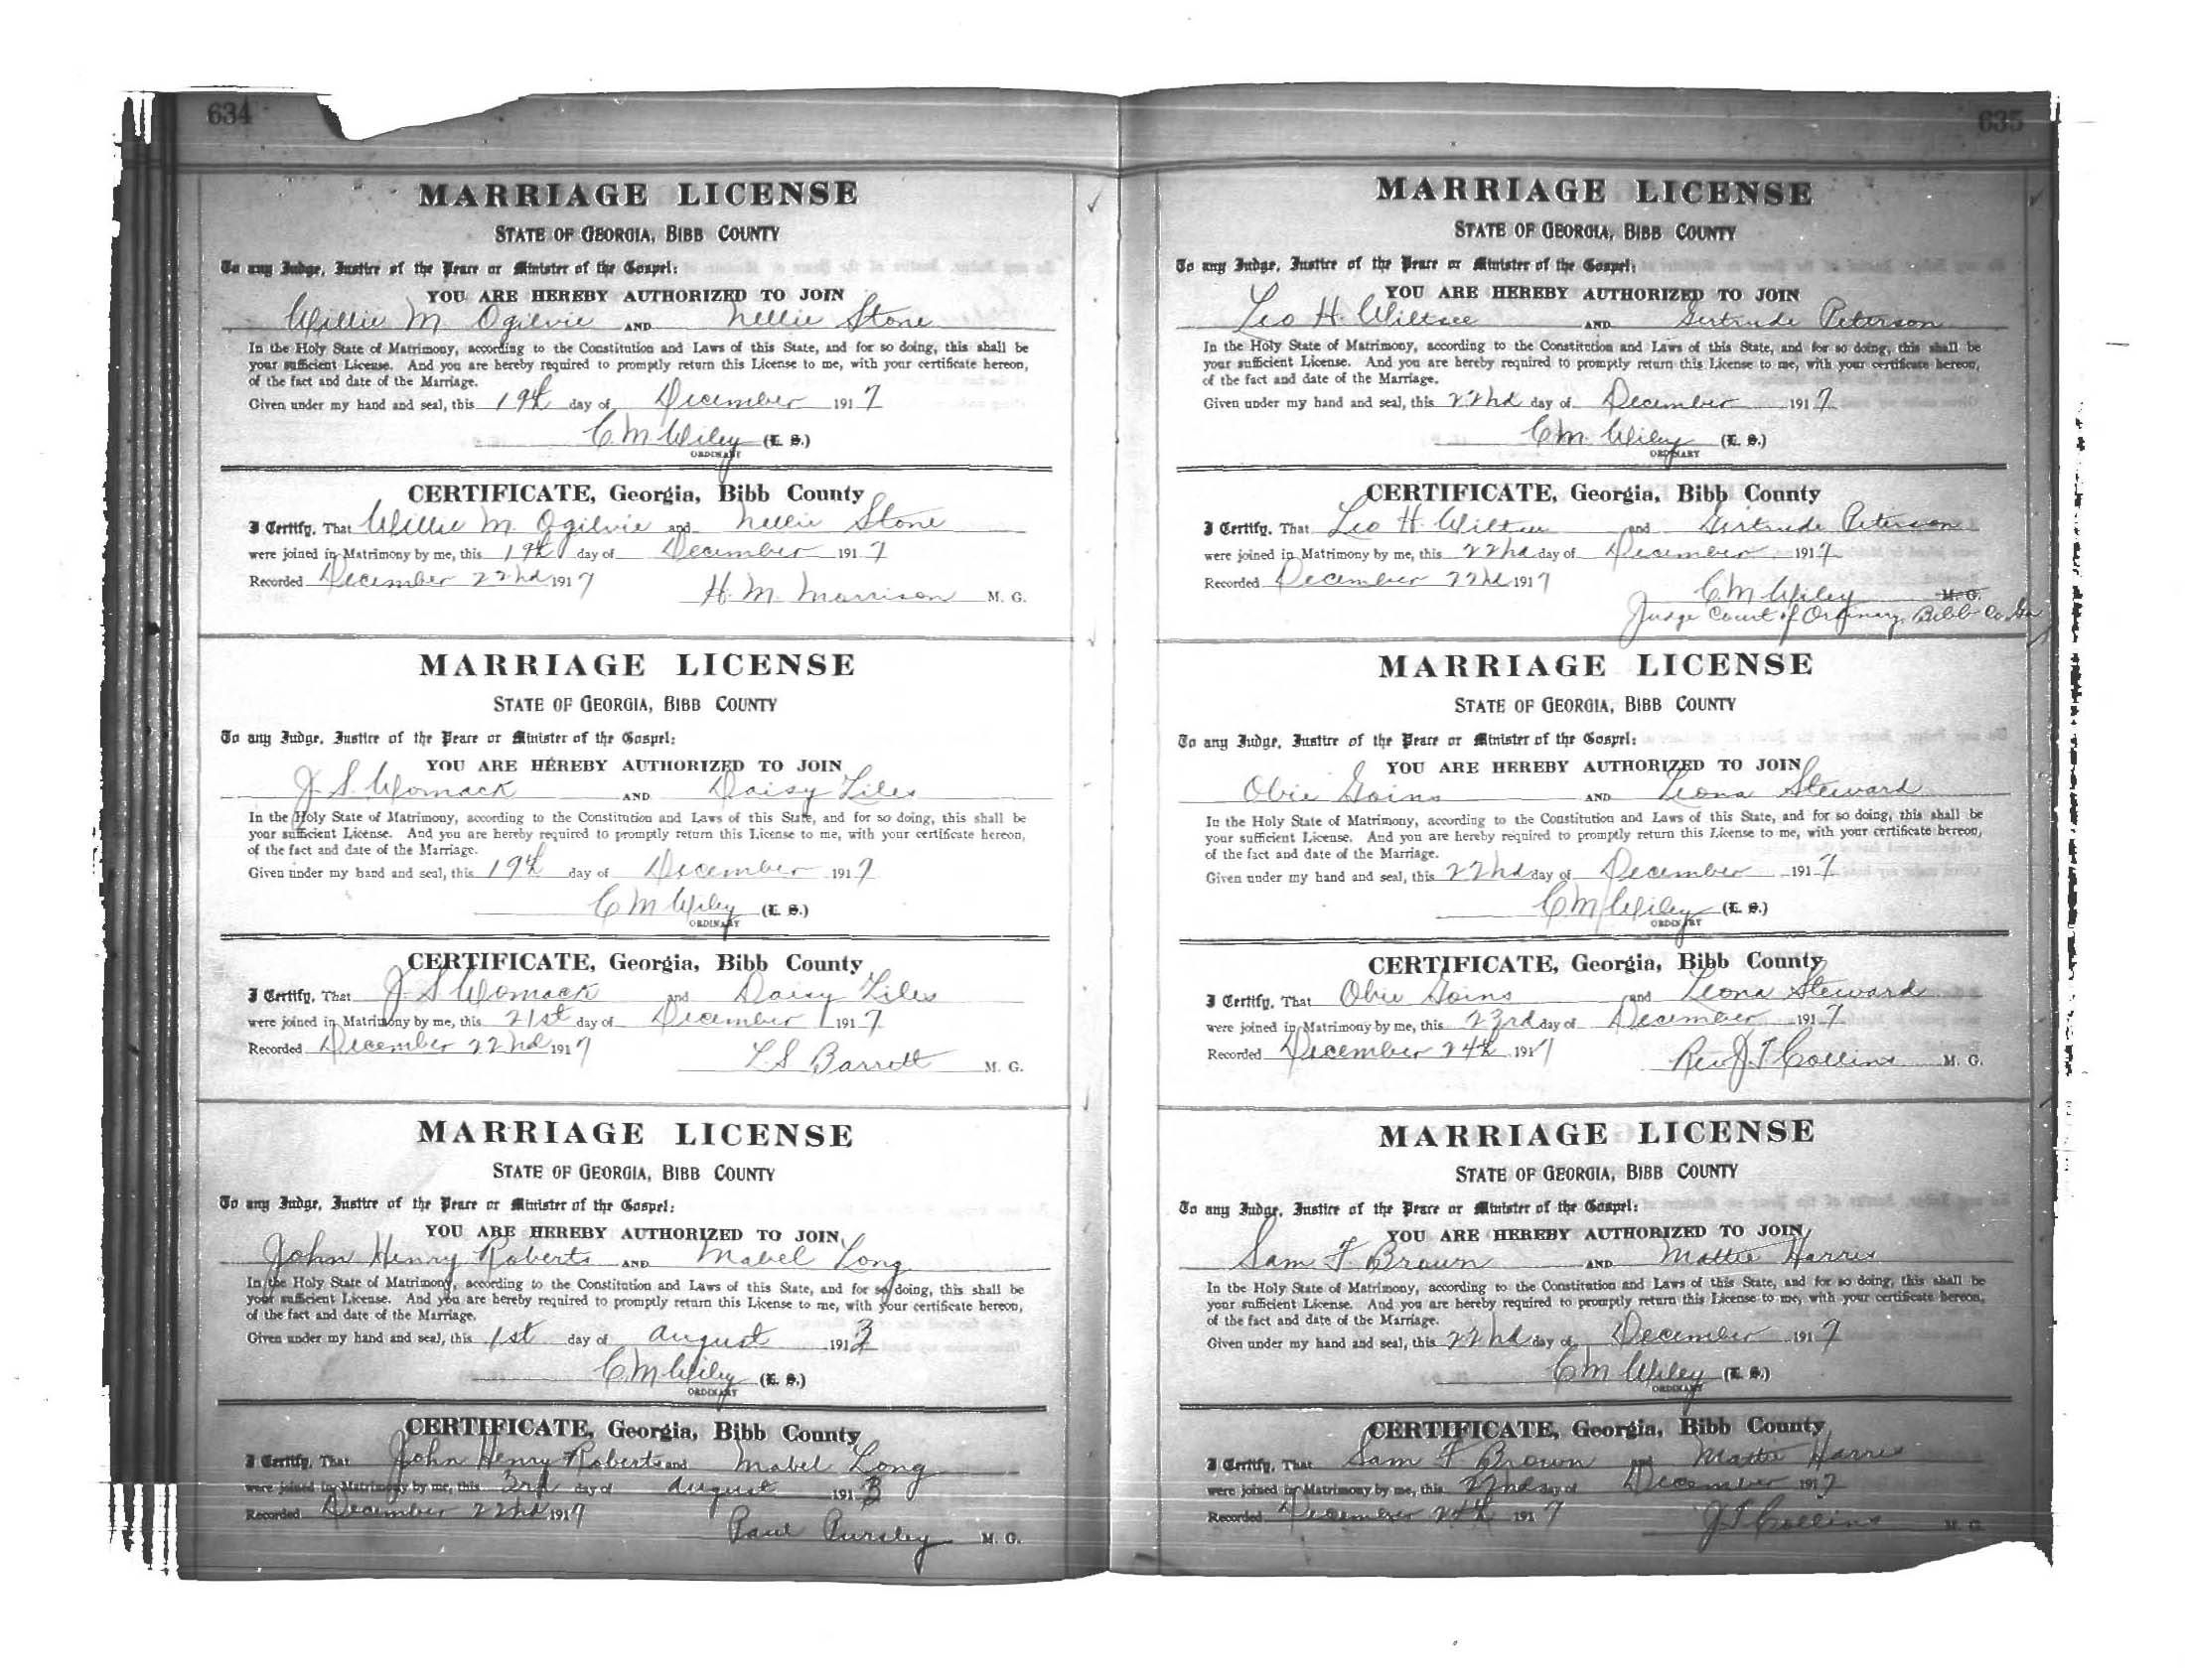 634
MARRIAGE LICENSE
STATE OF GEORGIA, BIBB COUNTY
To any Judge, Justice of the Peace or Minister of the Gospel:
YOU ARE HEREBY AUTHORIZED TO JOIN
Willie M. Ogilvie AND Nellie Stone
In the Holy State of Matrimony, according to the Constitution and Laws of this State, and for so doing, this shall be
your sufficient License. And you are hereby required to promptly return this License to me, with your certificate hereon,
of the fact and date of the Marriage.
Given under my hand and seal, this 19th day of December 1917
C. M. Wiley (L. S.)
ORDINARY
CERTIFICATE, Georgia, Bibb County
I Certify, That Willie M. Ogilvie and Nellie Stone
were joined in Matrimony by me, this 19th day of December 1917
Recorded December 22nd 1917
H. M. Morrison M. G.
MARRIAGE LICENSE
STATE OF GEORGIA, BIBB COUNTY
To any Judge, Justice of the Peace or Minister of the Gospel:
YOU ARE HEREBY AUTHORIZED TO JOIN
J. S. Womack AND Daisy Liles
In the Holy State of Matrimony, according to the Constitution and Laws of this State, and for so doing, this shall be
your sufficient License. And you are hereby required to promptly return this License to me, with your certificate hereon,
of the fact and date of the Marriage.
Given under my hand and seal, this 19th day of December 1917
C M Wiley (L. S.)
ORDINARY
CERTIFICATE, Georgia, Bibb County
I Certify, That J. S. Womack and Daisy Liles
were joined in Matrimony by me, this 21st day of December 1917
Recorded December 22nd 1917
L. S. Barrett M. G.
MARRIAGE LICENSE
STATE OF GEORGIA, BIBB COUNTY
To any Judge, Justice of the Peace or Minister of the Gospel:
YOU ARE HEREBY AUTHORIZED TO JOIN
John Henry Roberts AND Mabel Long
In the Holy State of Matrimony, according to the Constitution and Laws of this State, and for so doing, this shall be
your sufficient License. And you are hereby required to promptly return this License to me, with your certificate hereon,
of the fact and date of the Marriage.
Given under my hand and seal, this 1st day of August 1913
C. M. Wiley (L. S.)
ORDINARY
CERTIFICATE, Georgia, Bibb County
I Certify, That John Henry Roberts and Mabel Long
were joined in Matrimony by me, this 3rd day of August 1913
Recorded December 22nd 1917
Paul Pursley M. G.
635
MARRIAGE LICENSE
STATE OF GEORGIA, BIBB COUNTY
To any Judge, Justice of the Peace or Minister of the Gospel:
YOU ARE HEREBY AUTHORIZED TO JOIN
Leo H. Wiltsee AND Gertrude Peterson
In the Holy State of Matrimony, according to the Constitution and Laws of this State, and for so doing, this shall be
your sufficient License. And you are hereby required to promptly return this License to me, with your certificate hereon,
of the fact and date of the Marriage.
Given under my hand and seal, this 22nd day of December 1917
C. M. Wiley (L. S.)
ORDINARY
CERTIFICATE, Georgia, Bibb County
I Certify, That Leo H. Wiltsee and Gertrude Peterson
were joined in Matrimony by me, this 22nd day of December 1917
Recorded December 22nd 1917
C. M. Wiley M. G.
Judge Court of Ordinary, Bibb Co. Ga
MARRIAGE LICENSE
STATE OF GEORGIA, BIBB COUNTY
To any Judge, Justice of the Peace or Minister of the Gospel:
YOU ARE HEREBY AUTHORIZED TO JOIN
Obie Goins AND Leona Steward
In the Holy State of Matrimony, according to the Constitution and Laws of this State, and for so doing, this shall be
your sufficient License. And you are hereby required to promptly return this License to me, with your certificate hereon,
of the fact and date of the Marriage.
Given under my hand and seal, this 22nd day of December 1917
C M Wiley (L. S.)
ORDINARY
CERTIFICATE, Georgia, Bibb County
I Certify, That Obie Goins and Leona Steward
were joined in Matrimony by me, this 23rd day of December 1917
Recorded December 24th 1917
Rev J. T. Collins M. G.
MARRIAGE LICENSE
STATE OF GEORGIA, BIBB COUNTY
To any Judge, Justice of the Peace or Minister of the Gospel:
YOU ARE HEREBY AUTHORIZED TO JOIN
Sam F. Brown AND Mattie Harris
In the Holy State of Matrimony, according to the Constitution and Laws of this State, and for so doing, this shall be
your sufficient License. And you are hereby required to promptly return this License to me, with your certificate hereon,
of the fact and date of the Marriage.
Given under my hand and seal, this 22nd day of December 1917
C M Wiley (L. S.)
ORDINARY
CERTIFICATE, Georgia, Bibb County
I Certify, That Sam F. Brown and Mattie Harris
were joined in Matrimony by me, this 22nd day of December 1917
Recorded December 24th 1917
J. T. Collins M. G.